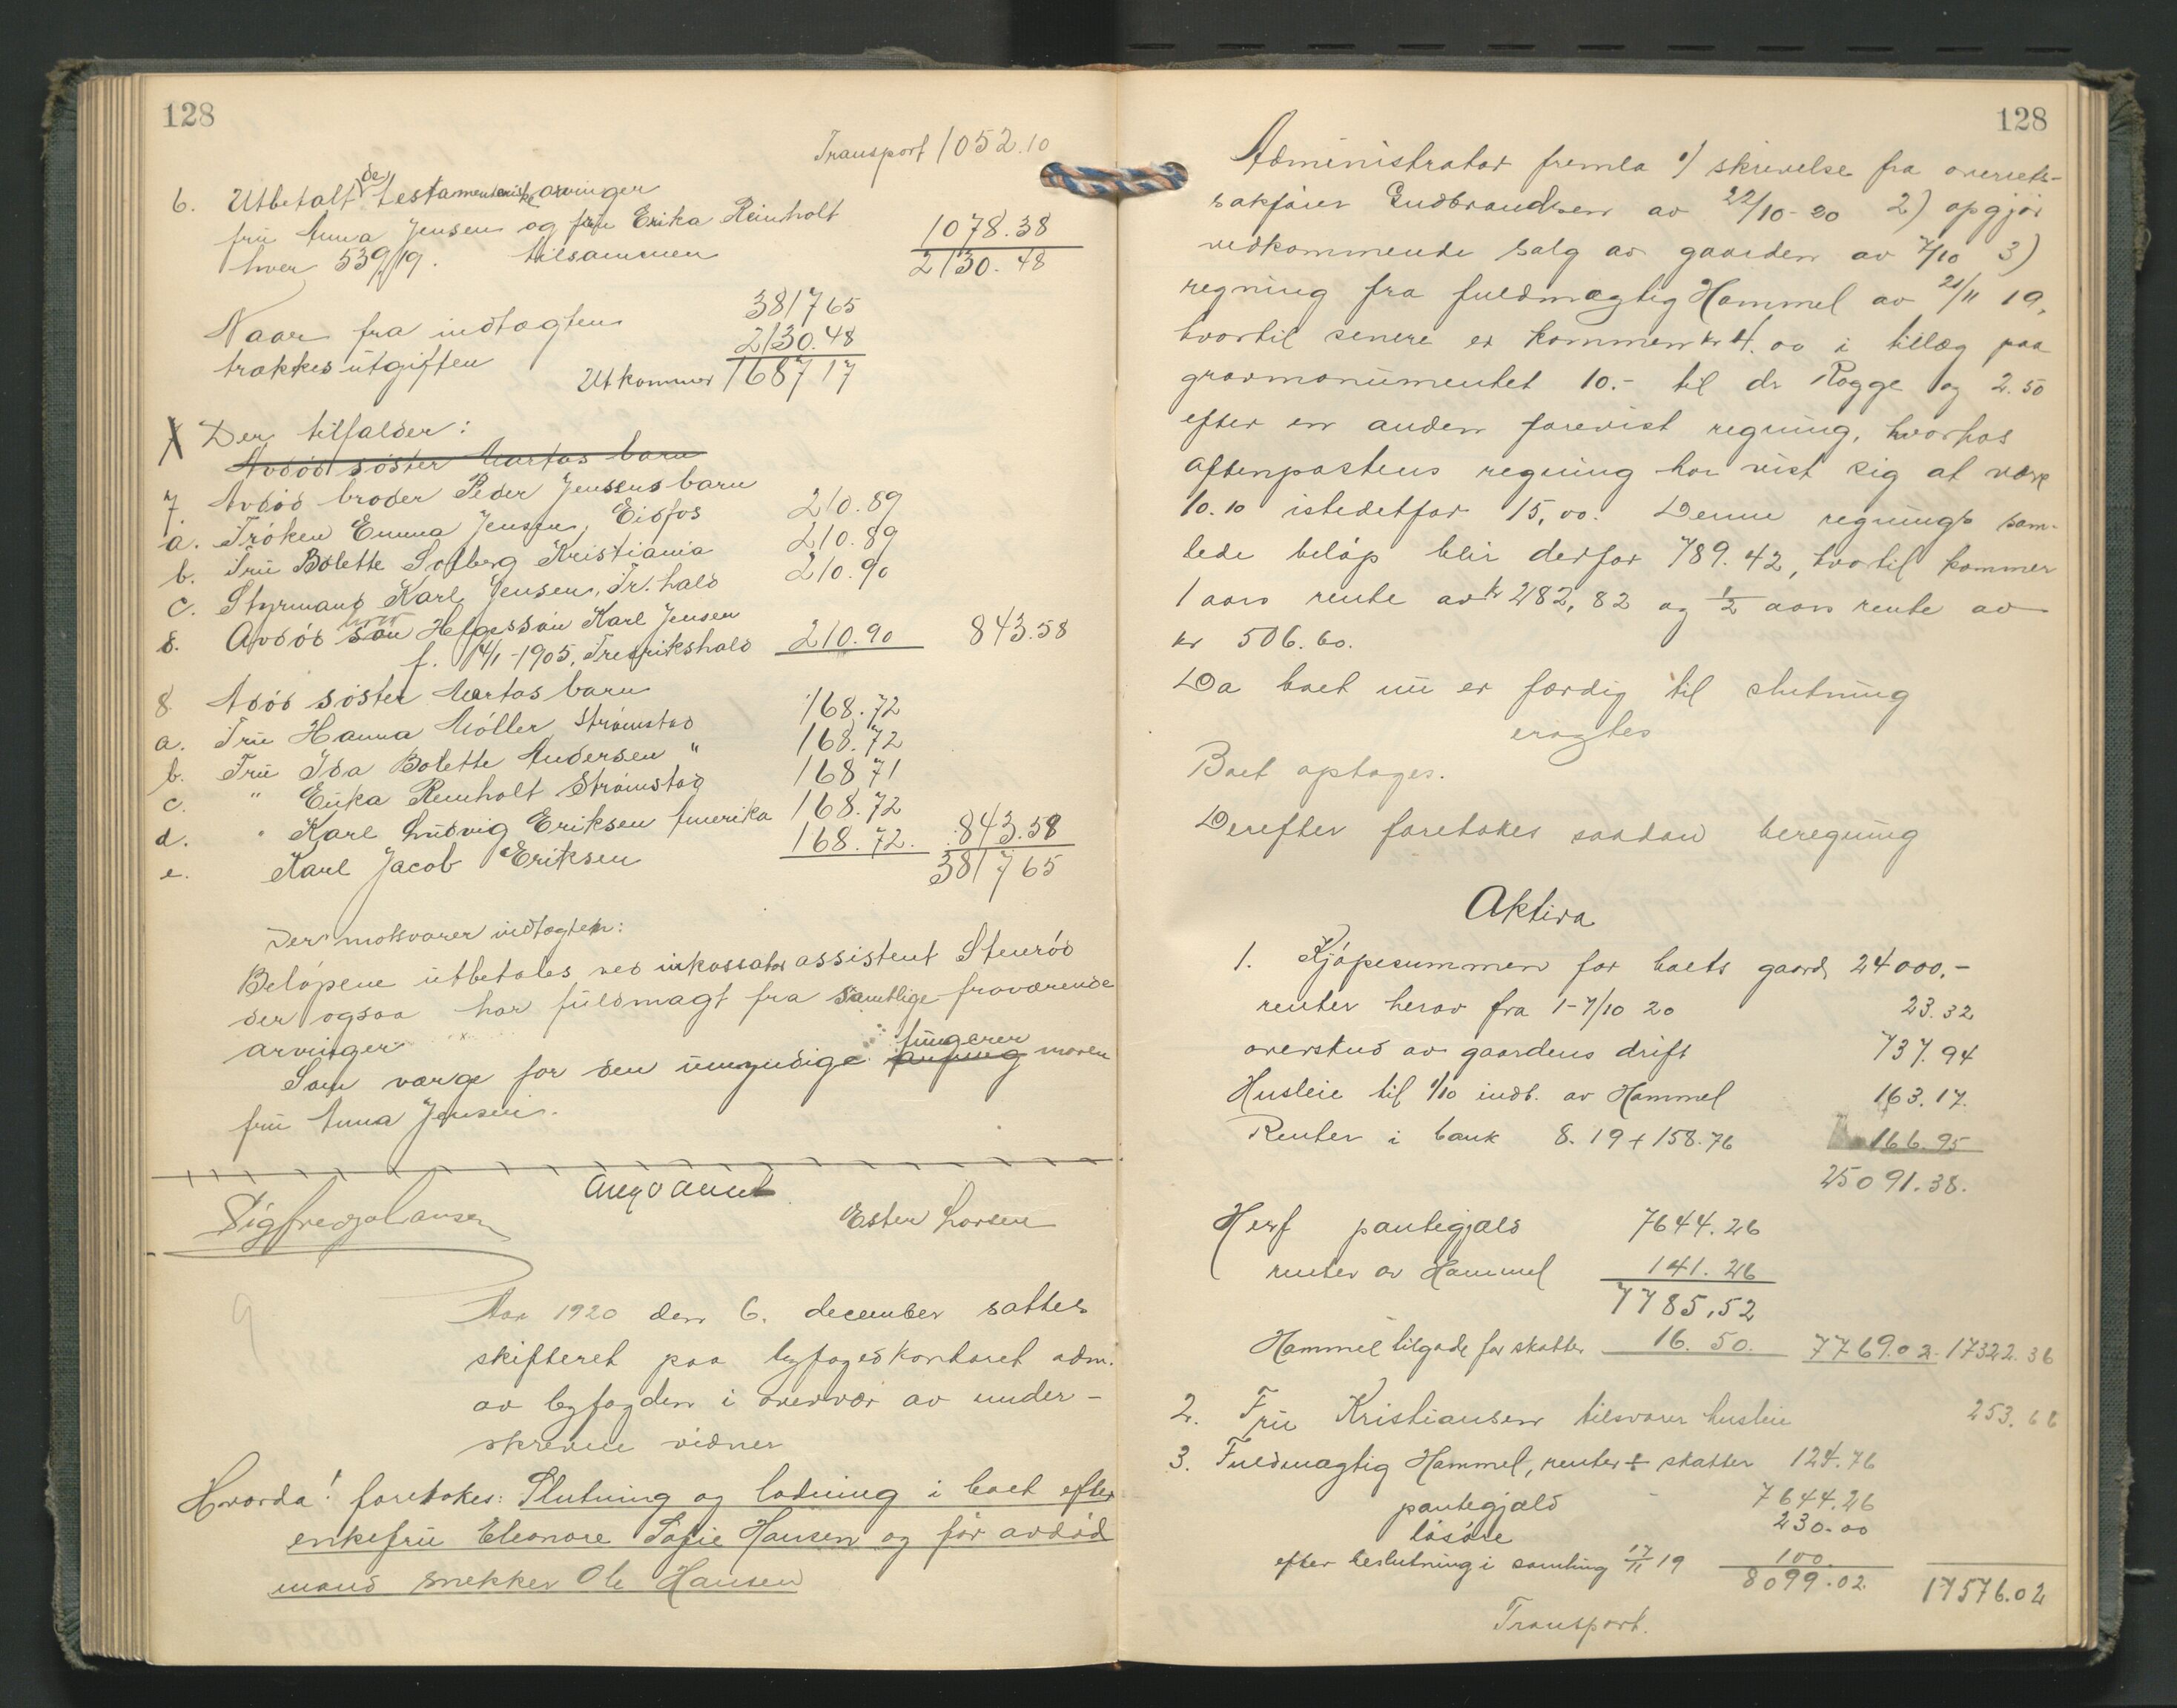 128
Transport 1052.10
6. Utbetalt de testamentariske arvinger
frü Anna Jensen og frü Erika Reinholt
hver 539,19. tilsammen 1078.38
2130.48
Naar fra indtægten 381765
trækkes ütgiften 2130.48
Utkommer 168717
X Der tilfalder:
Avdöd söster Martas barn
7. Avdöd broder Peder Jensens barn
a. Fröken Emma Jensen, Eidsfos 210.89
b. Frü Bolette Solberg Kristiania 210.89
c. Styrmand Karl Jensen, Fr.hald 210.90
d. Avdöd sön Helges sön Karl Jensen
f. 14/1-1905, Fredrikshald 210.90 843.58
8. Avdöd söster Martas barn
a. Frü Hanna Möller Strömstad 168.72
b. Frü Ida Bolette Andersen " 168.72
c. " Erika Reinholt Strömstad 168,71
d. " Karl Ludvig Eriksen Amerika 168.72
e. Karl Jacob Eriksen 168.72. 843.59
381765
Der motsvarer indtægten:
Belöpene ütbetales ved inkassator assistent Stenröd
der ogsaa har füldmagt fra samtlige fraværende
arvinger
Som værge for den ümyndige fungerer moren
frü Anna Jensen.
Ester Larsen
Aar 1920 den 6. december sattes
skifteret paa byfogedkontoret adm.
av byfogden i overvær av under-
skrevne vidner
Hvorda! foretokes: Slutning og lodning i boet efter
enkefrü Eleonore Sofie Hansen og før avdöd
mand snekker Ole Hansen
128
Administrator fremla 1) skrivelse fra overrets-
sakförer Gudbrandsen av 22/10-20 2) opgjör
vedkommende salg av gaarden av 7/10 3)
regning fra fuldmægtig Hammel av 21/11 19,
hvortil senere er kommen kr 4.00 i tillæg paa
gravmonümentet 10.- til dr Rogge og 2.50
efter en anden forevist regning, hvorhos
Aftenpostens regning har vist sig at være
10.10 istedetfor 15,00. Denne regnings sam-
lede belöp blir derfor 789.42, hvortil kommer
1 aars rente av kr 282,82 og 1/2 aars rente av
kr 506.60.
Da boet nü er færdig til slutning
eragtes
Boet optages.
Derefter foretokes saadan beregning
Aktiva
1. Kjöpesummen for boets gaard 24000,-
renter herav fra 1-7/10 20 23.32
overskud av gaardens drift 737.94
Husleie til 1/10 indb. av Hammel 163.17.
Renter i bank 8.19 + 158.76 166.95
25091.38.
Herf pantegjæld 7644.26
renter av Hammel 141.26
7785,52
Hammel tilgode for skatter 16.50. 7769.02. 17322.36
2. Frü Kristiansen tilsvarer husleie 253.66
3. Fuldmægtig Hammel, renter ÷ skatter 124.76
pantegjæld 7644.26
lösöre 230.00
efter beslutning i samling 17/11 19 100.
8099.02 17576.02
Transport.